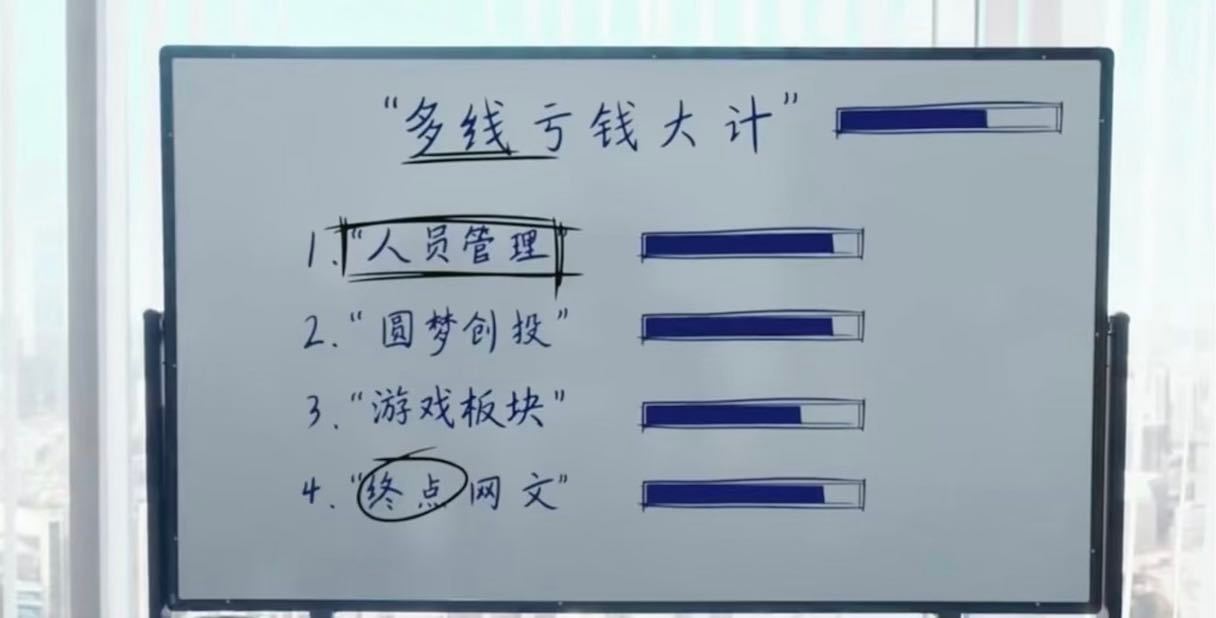 “多线亏钱大计”
1.“人员管理”
2.“圆梦创投”
3.“游戏板块”
4.“终点网文”